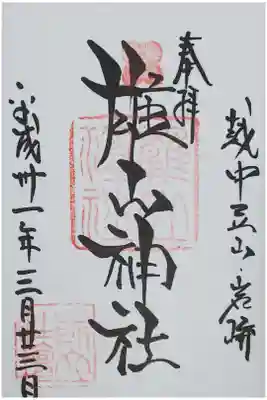 越中立山岩峅
奉拝
雄山神社
平成卅一年三月廿三日